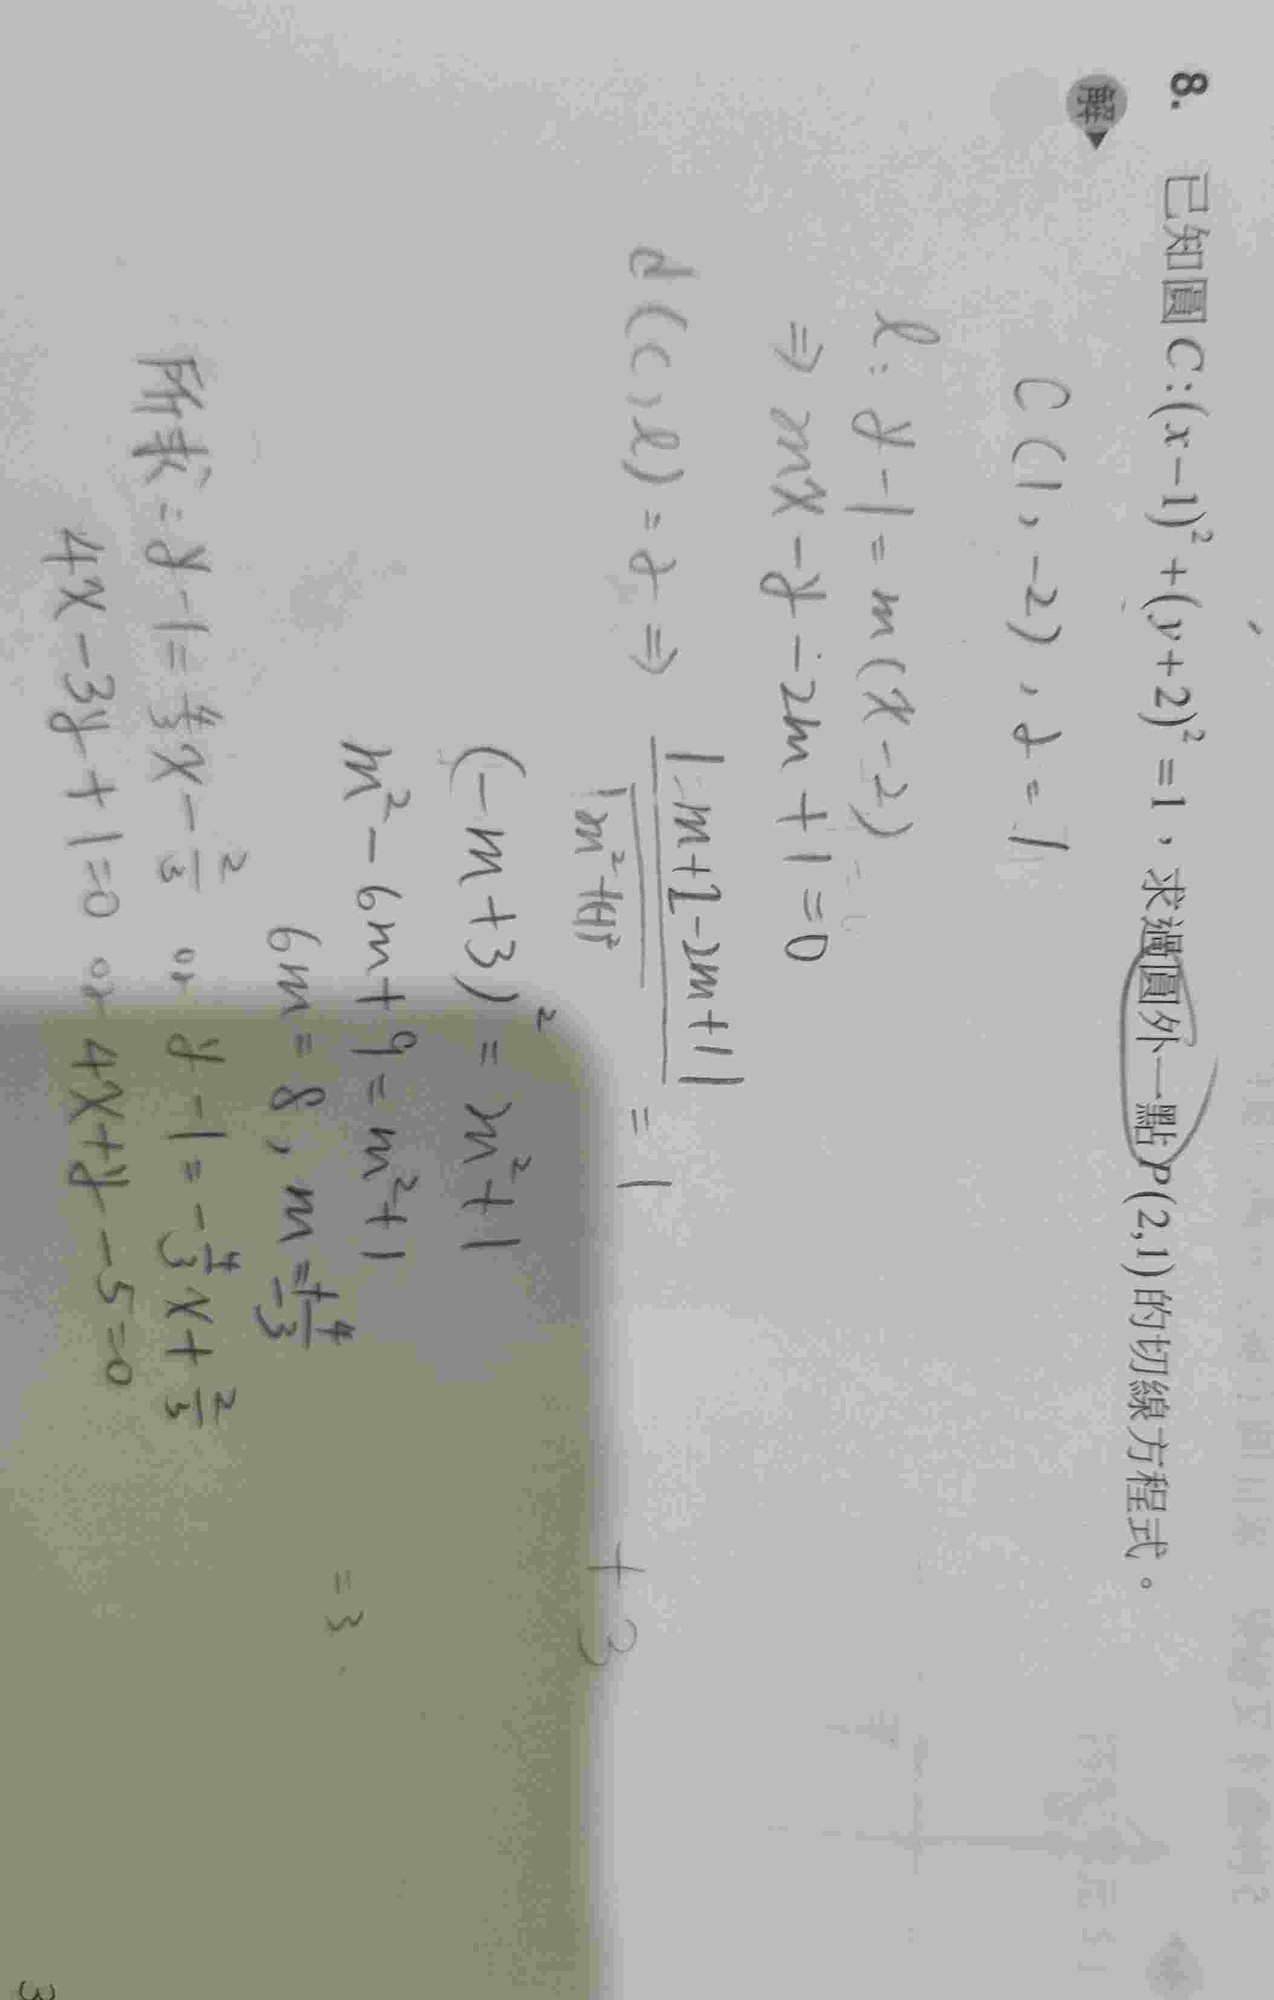 8. 已知圓C:(x-1)²+(y+2)²=1,求過圓外一點P(2,1)的切線方程式。
解
C(1,-2),r=1
l: y-1=m(x-2)
⇒ mx-y-2m+1=0
d(C,l)=r ⇒ |1·m+2-2m+1| / √m²+(1)² = 1
+3
(-m+3)²=m²+1
m²-6m+9=m²+1
=3
6m=8, m=±4/3
所求:y-1=4/3x-2/3 or y-1=-4/3x+2/3
4x-3y+1=0 or 4x+y-5=0
3